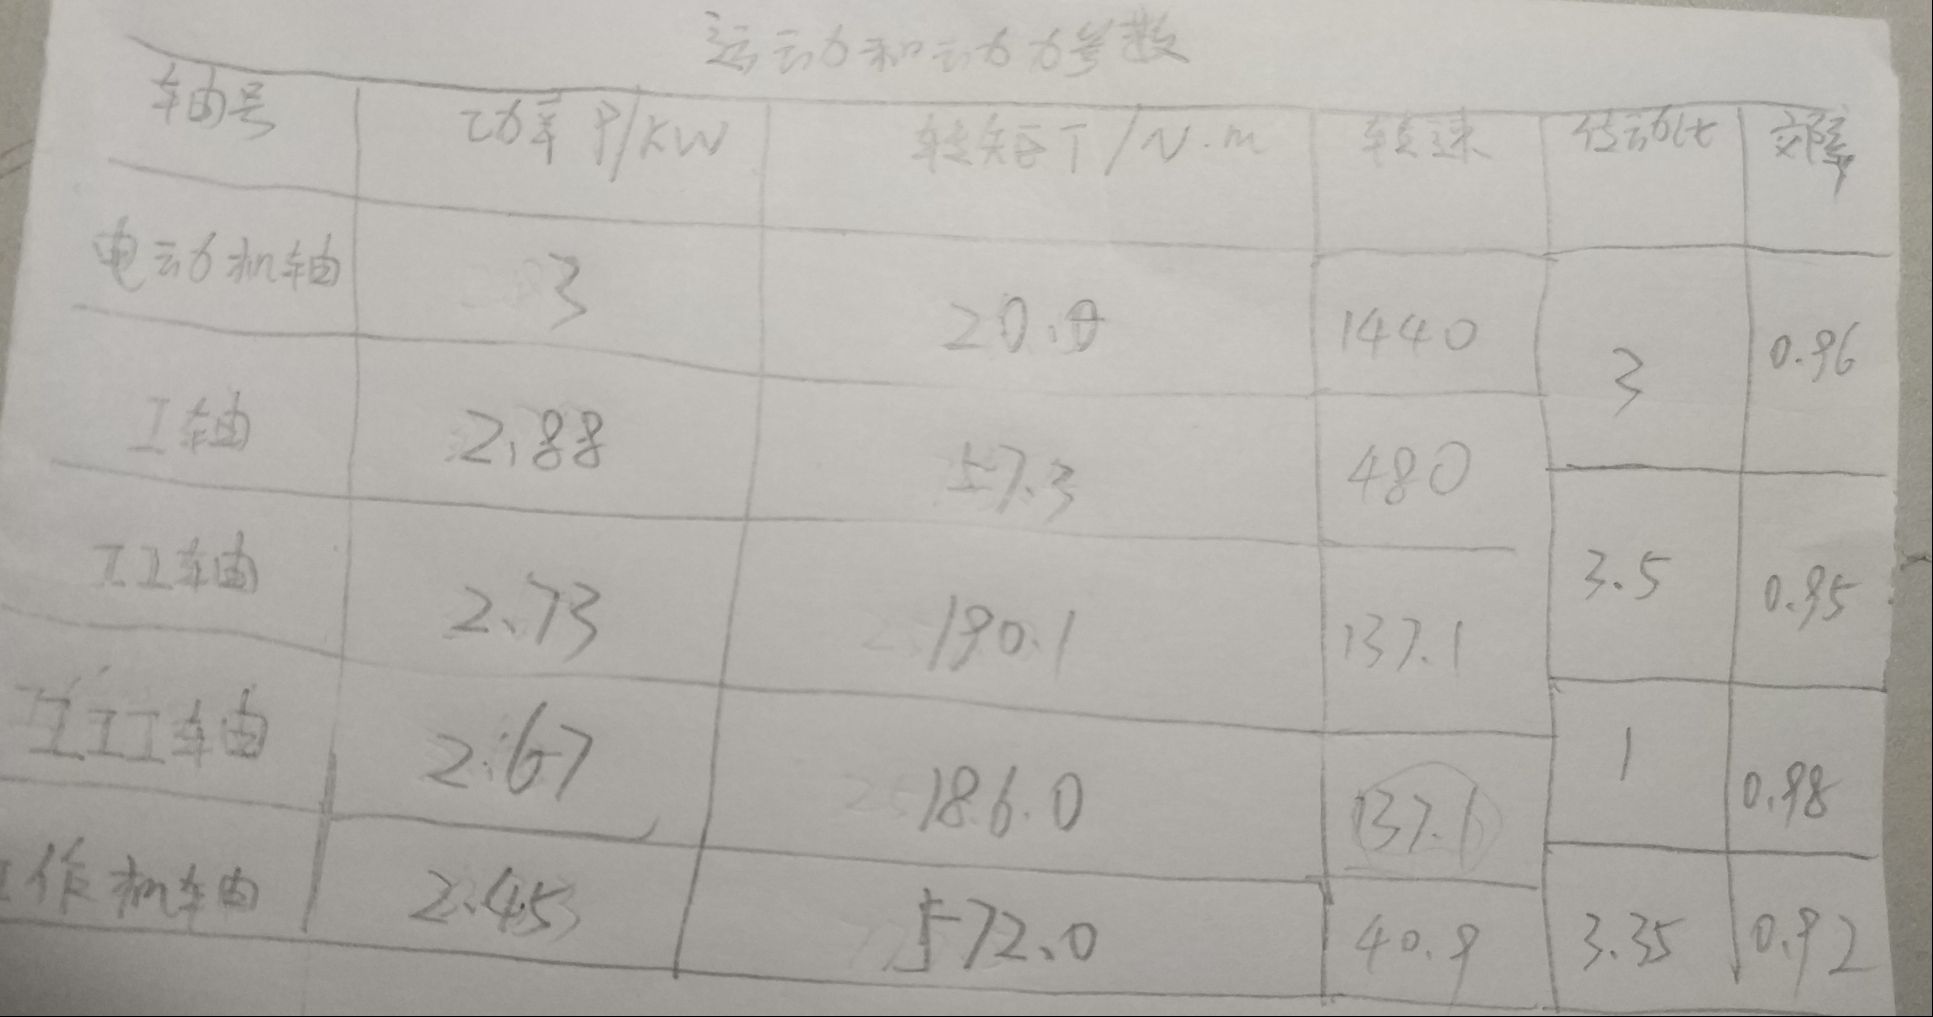 运动和动力参数
轴号 功率 P/KW 转矩T/N.m 转速 传动比 效率
电动机轴 3 20.0 1440
3 0.96
I轴 2.88 57.3 480
3.5 0.95
II轴 2.73 190.1 137.1
1 0.98
III轴 2.67 186.0 137.1
工作机轴 2.45 572.0 40.9 3.35 0.92